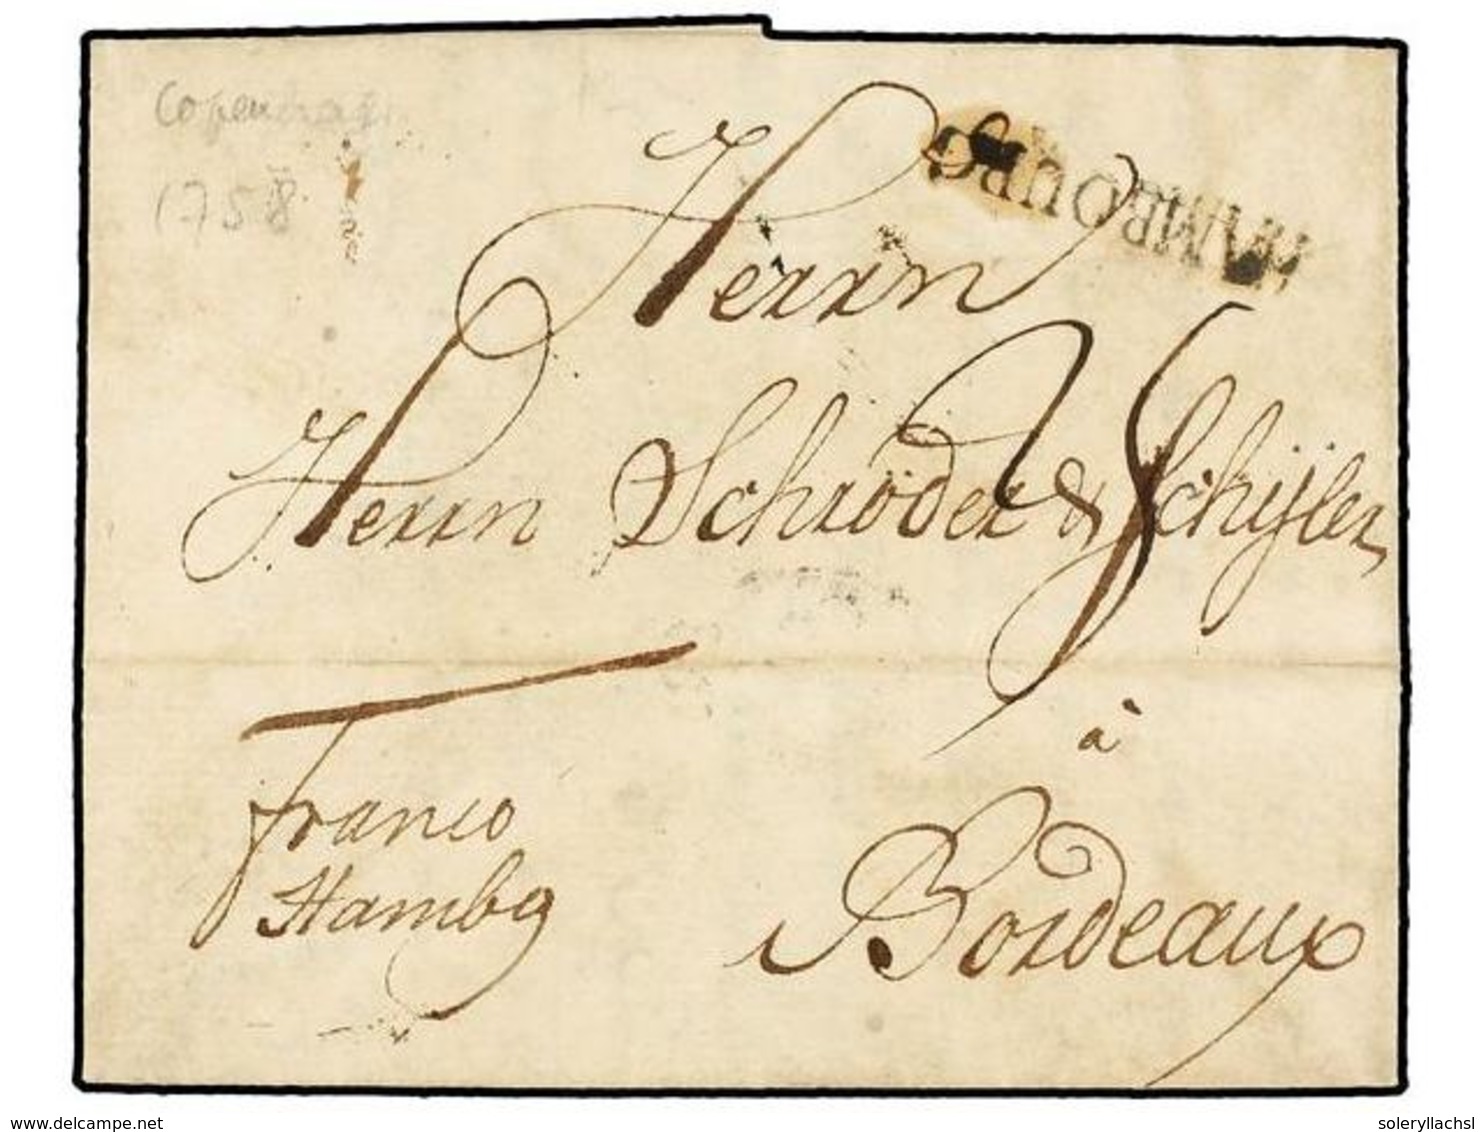 Copenhagen
1758
HAMBOURG
Herrn
Herrn Schröder & Schÿler,
à
Bordeaux
franco
Hambg
delcampe.net
soleryllachsl